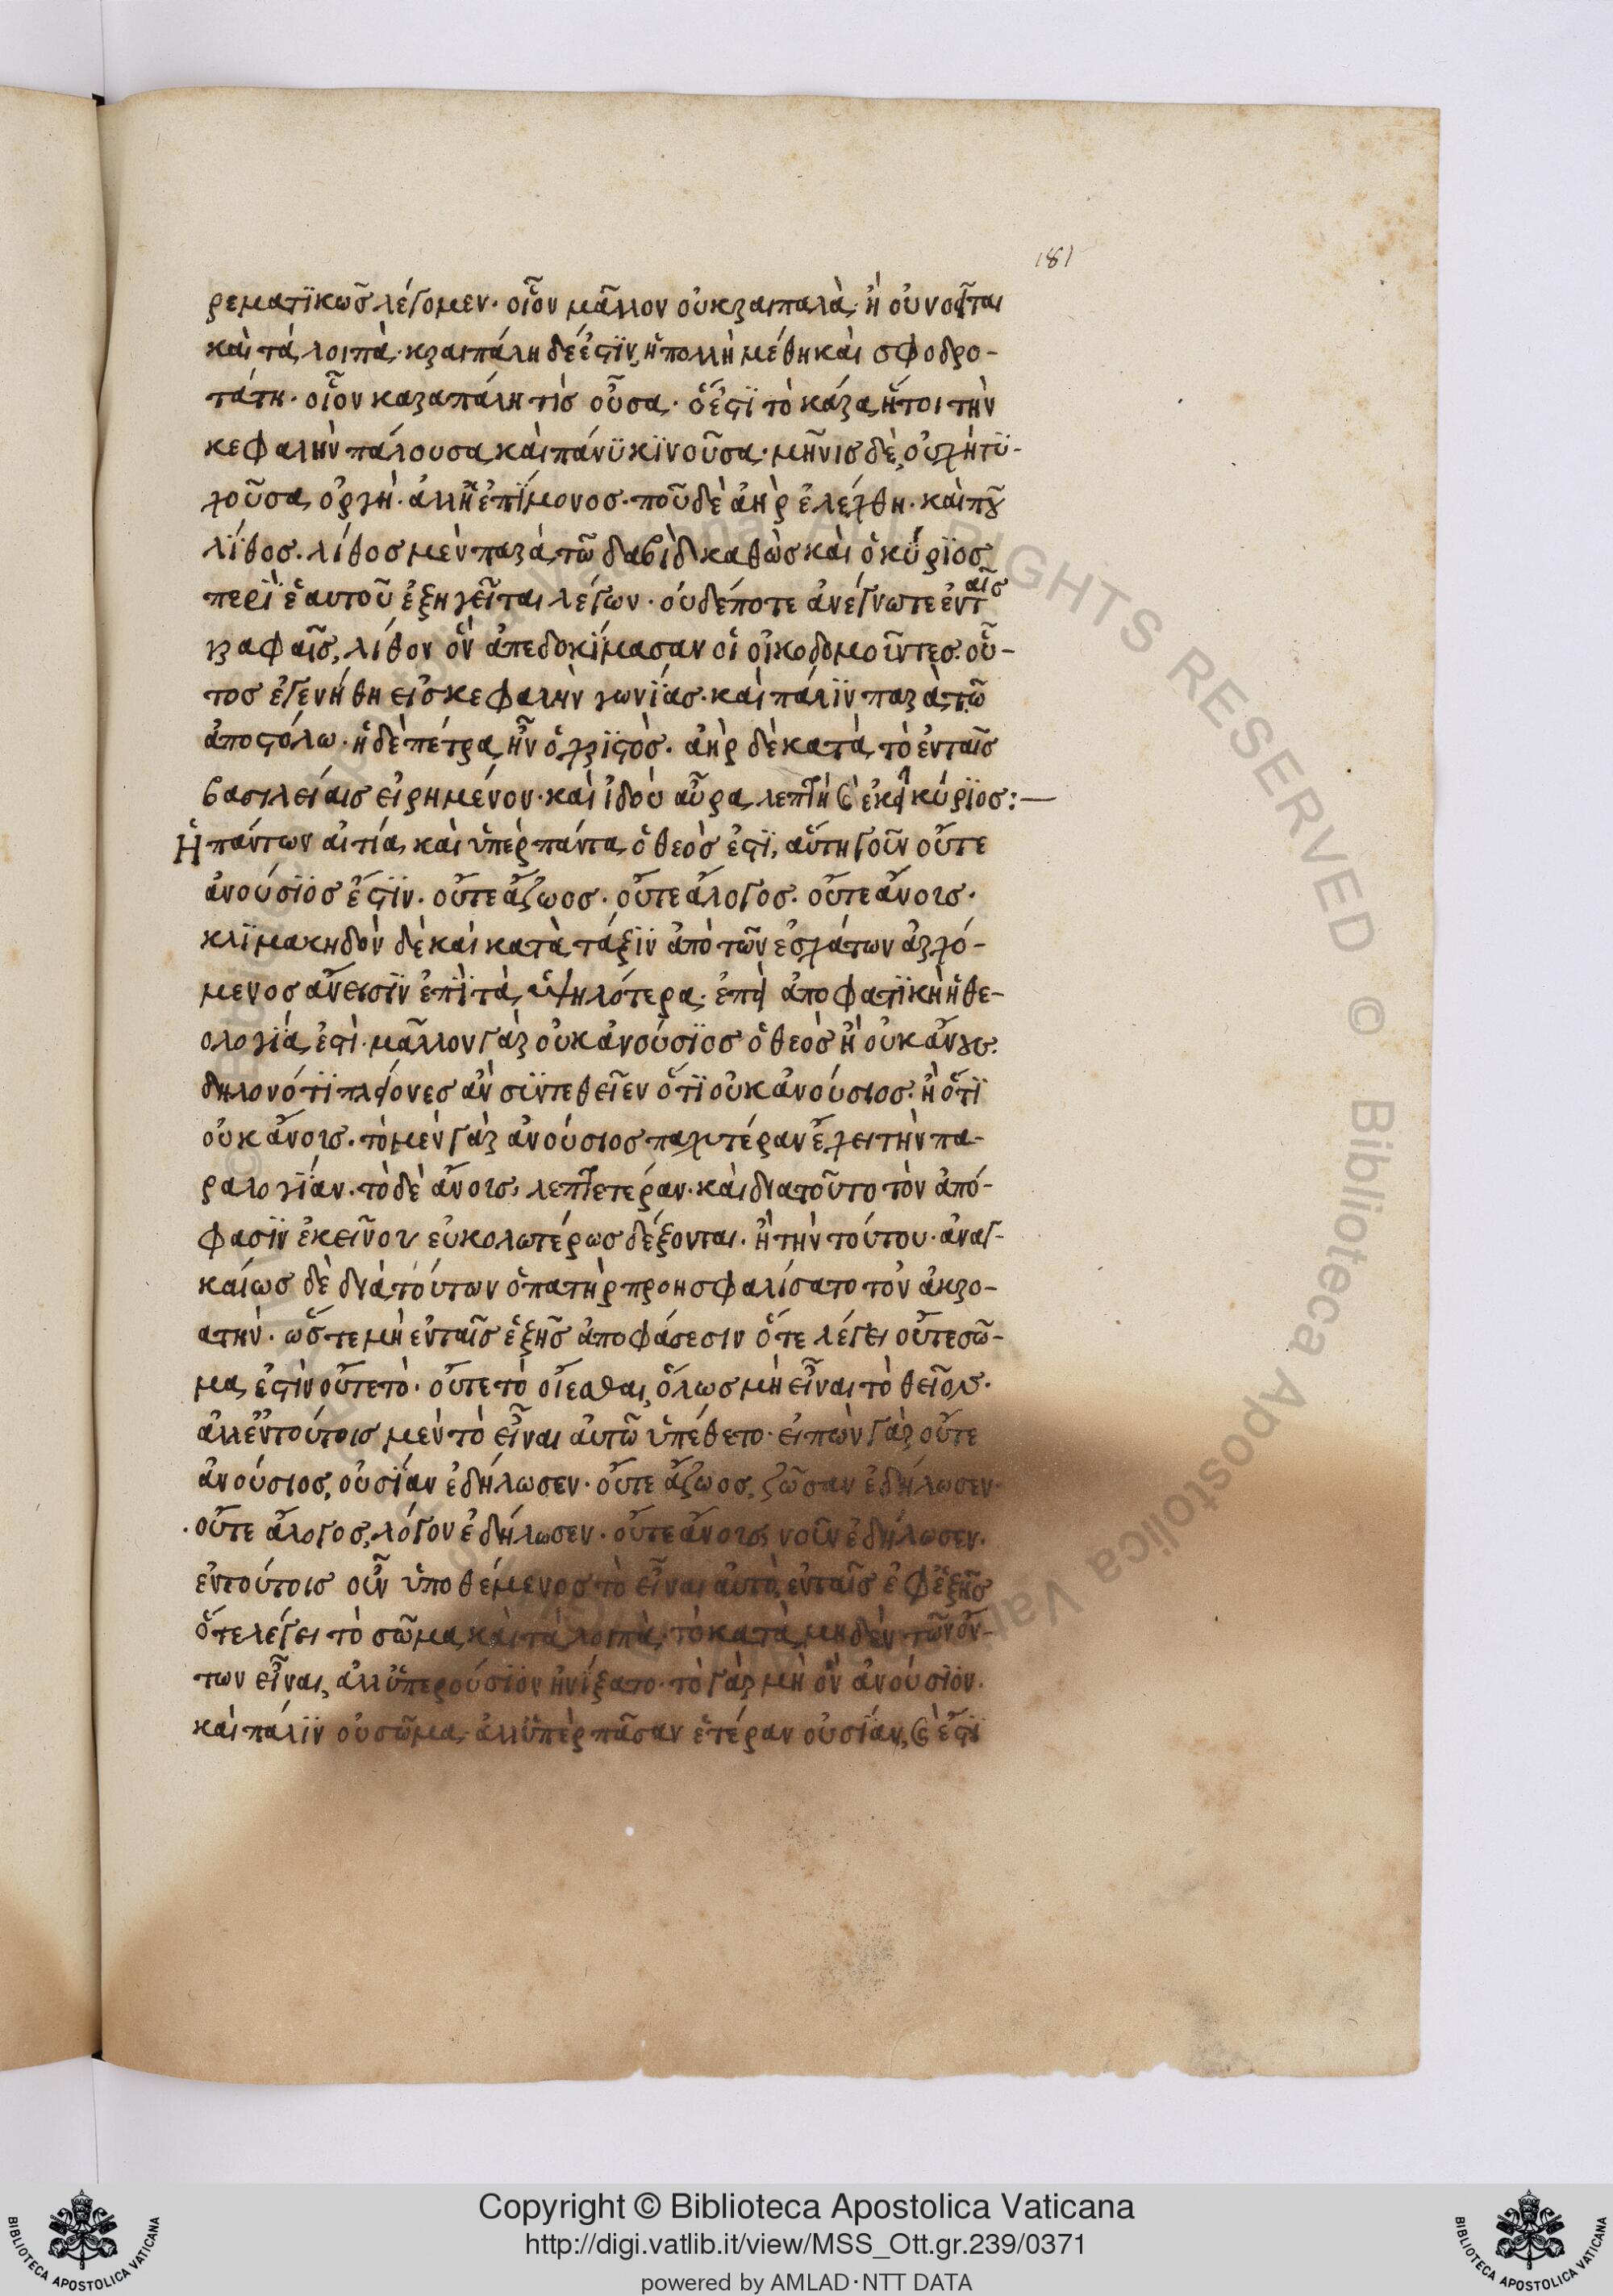 181
ρεματϊκῶσ λέγομεν· οἷον μᾶλλον οὐκραιπαλᾷ· ἢ οὐ νοεῖται
καὶ τὰ λοιπά· κραιπάλη δέ ἐστϊν, ἡ πολλὴ μέθη καὶ σφοδρο-
τάτη· οἷον καραπάλη τὶσ οὖσα· ὅ ἐστϊ τὸ κάρα, ἤτοι τὴν
κεφαλὴν πάλουσα, καὶ πάνϋ κϊνοῦσα· μῆνισ δὲ, οὐχ ἡ τϋ-
χοῦσα ὀργὴ· ἀλλ' ἡ ἐπϊμονοσ· ποῦ δὲ ἀὴρ ἐλέχθη· καὶ ποῦ
λΐθοσ· λίθοσ μὲν παρὰ τῶ δαβὶδ· καθὼσ καὶ ὁ κύρϊοσ
περὶ ἑαυτοῦ ἐξηγεῖται λέγων· οὐδέποτε ἀνέγνωτε ἐν ταῖσ
γραφαῖσ, λίθον ὃν ἀπεδοκΐμασαν οἱ οἰκοδομοῦντεσ· οὗ-
τοσ ἐγενήθη εἰσ κεφαλὴν γωνΐασ· καὶ πάλϊν παρὰ τῶ
ἀποστόλω· ἡ δὲ πέτρα, ἦν ὁ χρϊστὸσ· ἀὴρ δὲ κατὰ τὸ ἐν ταῖσ
βασιλείαισ εἰρημένον· καὶ ἰδοὺ αὖρα λεπτὴ καὶ ἐκεῖ κύρϊοσ:—
Ἡ πάντων αἰτία, καὶ ὑπὲρ πάντα, ὁ θεὸσ ἐστϊ, αὕτη γοῦν οὔτε
ἀνούσϊοσ ἔστϊν· οὔτε ἄζωοσ· οὔτε ἄλογοσ· οὔτε ἄνουσ·
κλϊμακηδὸν δὲ καὶ κατὰ τάξϊν ἀπὸ τῶν ἐσχάτων ἀρχό-
μενοσ ἄνεισϊν ἐπὶ τὰ ὑψηλότερα· ἐπεὶ ἀποφατϊκὴ ἡ θε-
ολογϊά ἐστὶ· μᾶλλον γὰρ οὐκ ἀνούσϊοσ ὁ θεὸσ ἢ οὐκ ἄνουσ·
δηλονότϊ πλείονεσ ἂν σϋντεθεῖεν ὅτϊ οὐκ ἀνούσιοσ· ἢ ὅτϊ
οὐκ ἄνουσ· τὸ μὲν γὰρ ἀνούσιοσ παχυτέραν ἔχει τὴν πα-
ραλογΐαν· τὸ δὲ ἄνουσ, λεπτετέραν· καὶ διατοῦτο τὸν ἀπό-
φασϊν ἐκεῖνου εὐκολωτέρωσ δέξονται· ἢ τὴν τούτου· ἀναγ-
καίωσ δὲ διὰ τούτων ὁ πατὴρ προησφαλίσατο τὸν ἀκρο-
ατὴν· ὥστε μὴ ἐν ταῖσ ἑξῆσ ἀποφάσεσιν ὅτε λέγει οὔτε σῶ-
μα ἐστὶν οὔτε τὸ· οὔτε τὸ οἴεσθαι, ὅλωσ μὴ εἶναι τὸ θεῖον·
ἀλλ' ἐν τούτοισ μὲν τὸ εἶναι αὐτῶ ὑπέθετο· εἰπὼν γὰρ οὔτε
ἀνούσιοσ, οὐσΐαν ἐδήλωσεν· οὔτε ἄζωοσ, ζῶσαν ἐδήλωσεν·
οὔτε ἄλογοσ, λόγον ἐδήλωσεν· οὔτε ἄνουσ, νοῦν ἐδήλωσεν·
ἐν τούτοισ οὖν ὑποθέμενοσ τὸ εἶναι αὐτὸ, ἐν ταῖσ ἐφεξῆσ
ὅτε λέγει τὸ σῶμα, καὶ τὰ λοιπὰ· τὸ κατὰ μηδὲν τῶν ὄν-
των εἶναι, ἀλλ' ὑπερούσϊον ἠνίξατο· τὸ γὰρ μὴ ὂν ἀνούσϊον·
καὶ πάλϊν οὐ σῶμα· ἀλλ' ὑπὲρ πᾶσαν ἑτέραν οὐσΐαν, καὶ ἔστϊ
Copyright © Biblioteca Apostolica Vaticana
http://digi.vatlib.it/view/MSS_Ott.gr.239/0371
powered by AMLAD·NTT DATA
BIBLIOTECA APOSTOLICA VATICANA
BIBLIOTECA APOSTOLICA VATICANA